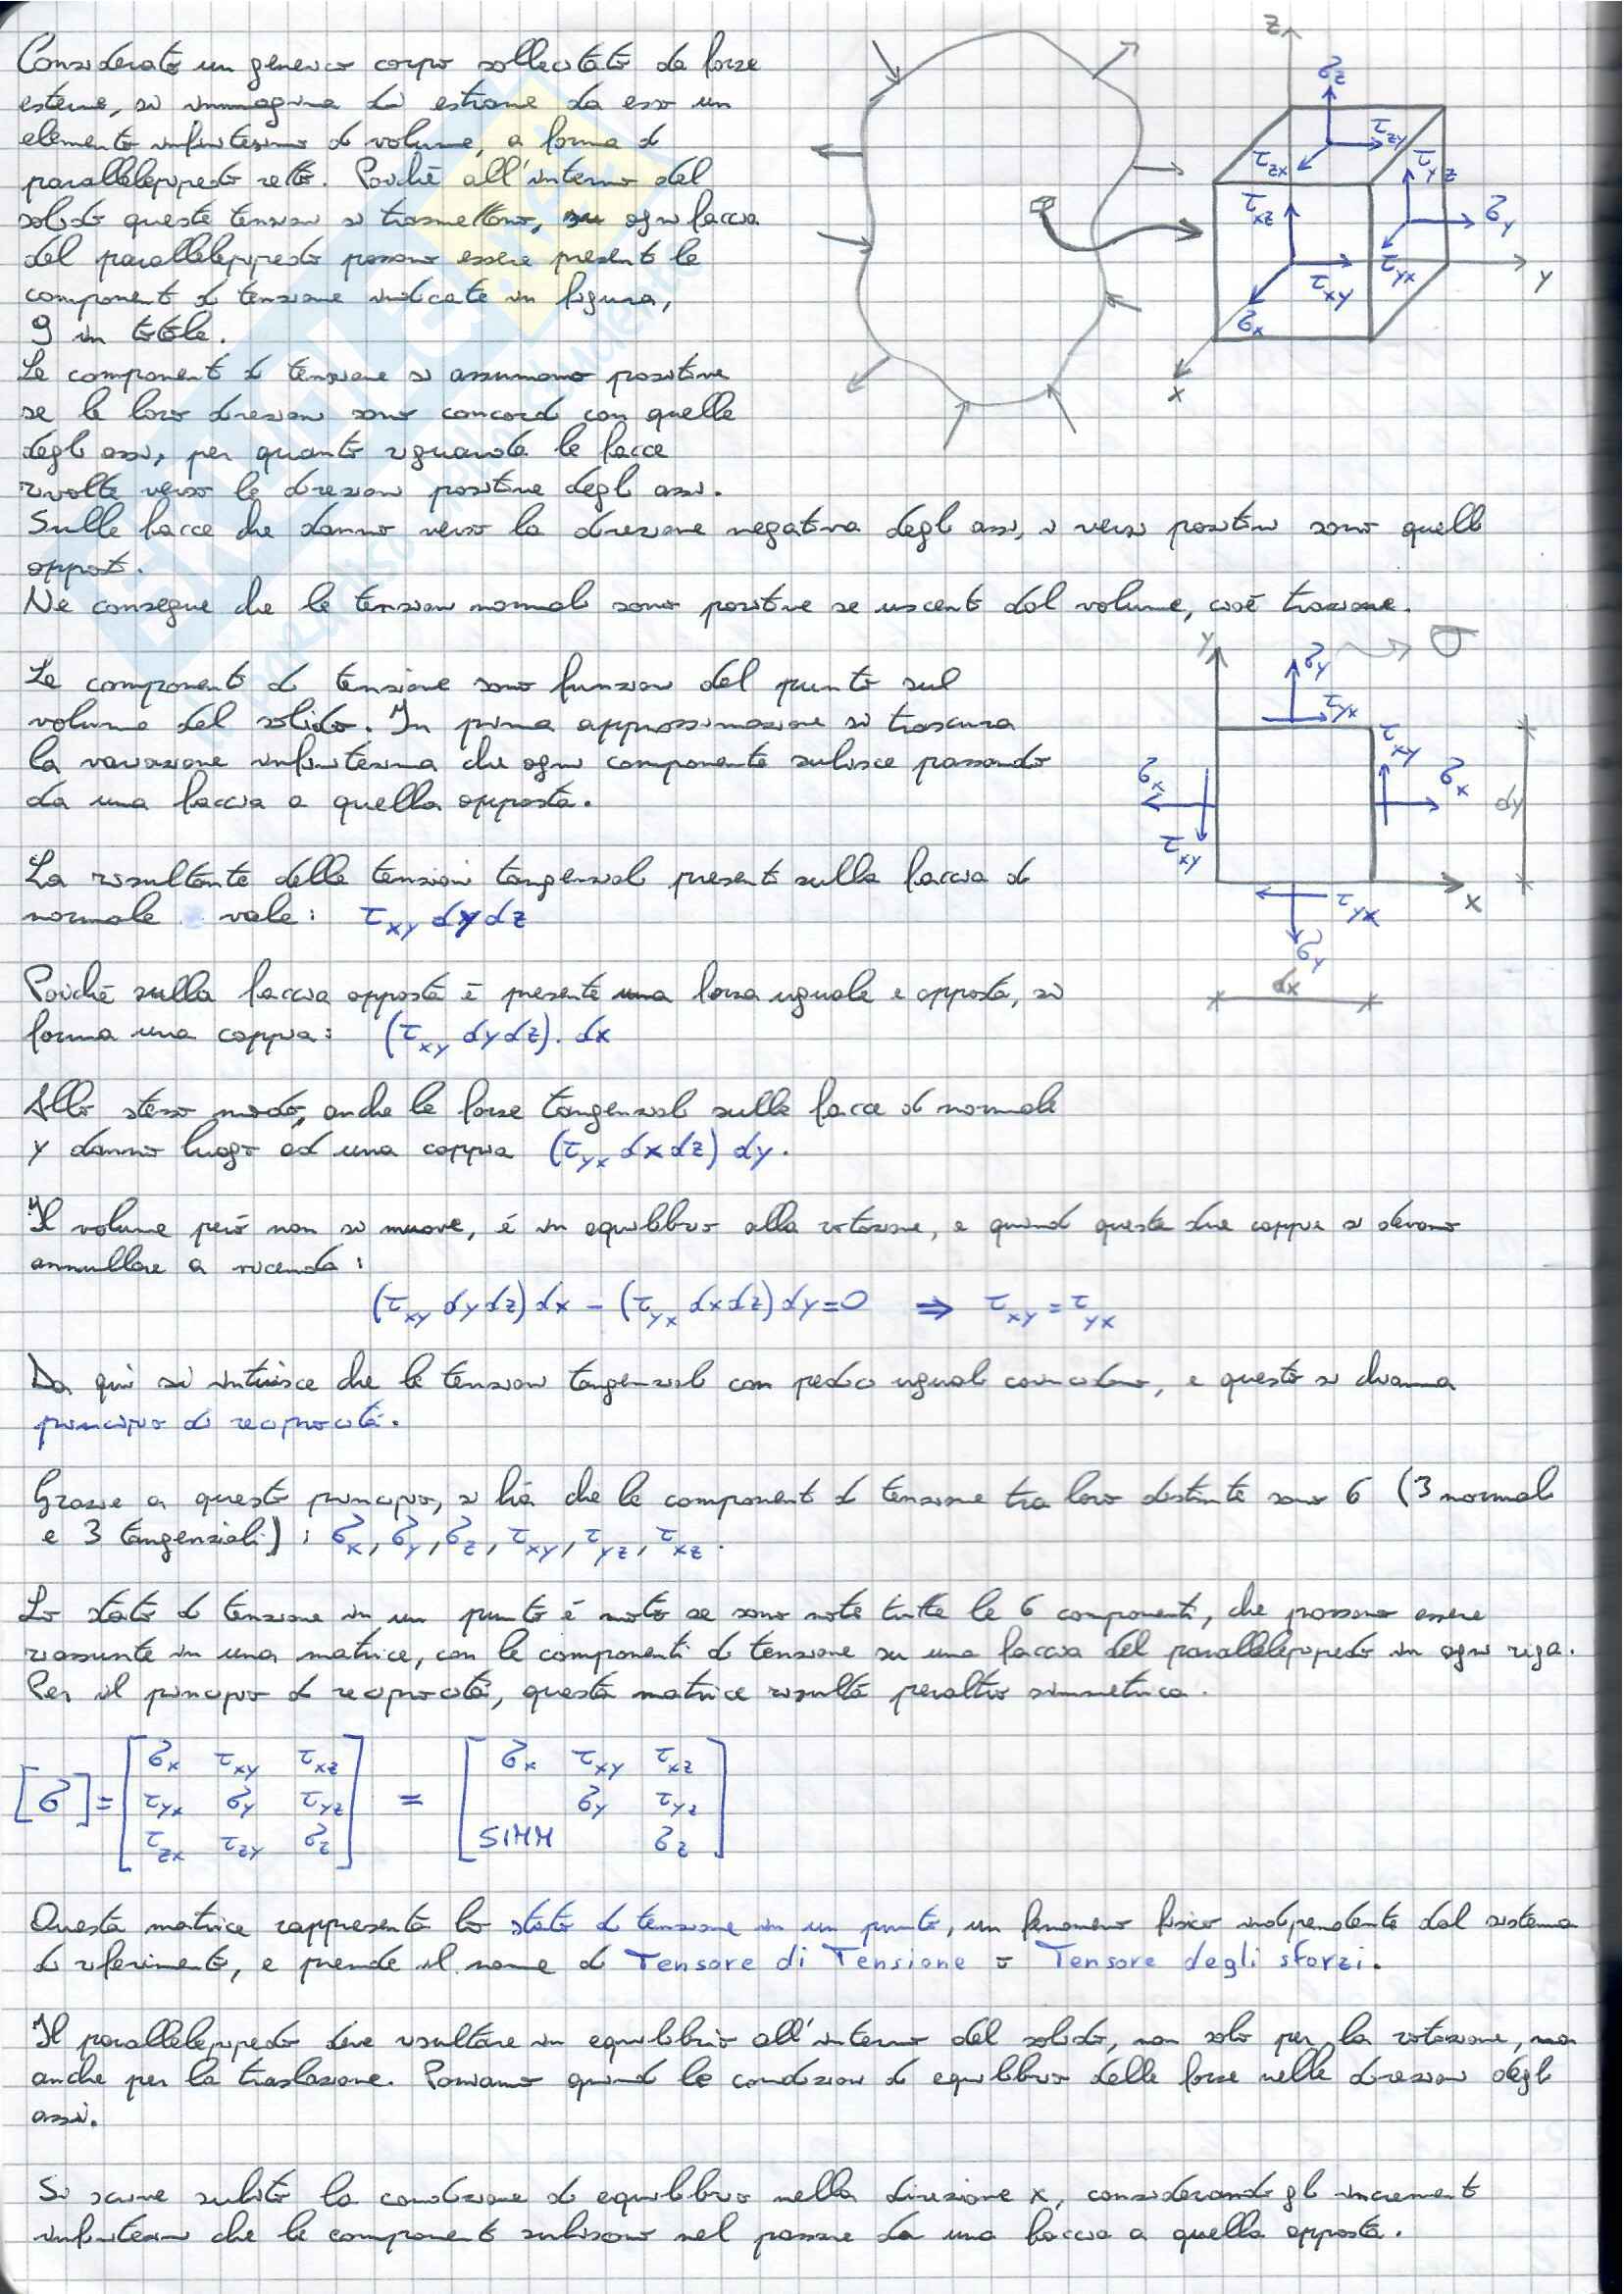 Considerato un generico corpo sollecitato da forze
esterne, si immagina di estrarre da esso un
elemento infinitesimo di volume, a forma di
parallelepipedo retto. Poichè all'interno del
solido queste tensioni si trasmettono, su ogni faccia
del parallelepipedo possono essere presenti le
componenti di tensione indicate in figura,
9 in totale.
Le componenti di tensione si assumono positive
se le loro direzioni sono concordi con quelle
degli assi, per quanto riguarda le facce
rivolte verso le direzioni positive degli assi.
Sulle facce che danno verso la direzione negativa degli assi, i versi positivi sono quelli
opposti.
Ne consegue che le tensioni normali sono positive se uscenti dal volume, cioè trazione.
z
σz
τzy
τzx
τyz
τxz
σy
τyx
τxy
y
σx
x
Le componenti di tensione sono funzioni del punto sul
volume del solido. In prima approssimazione si trascura
la variazione infinitesima che ogni componente subisce passando
da una faccia a quella opposta.
y
σy
σ
τyx
τxy
σx
σx
dy
τxy
x
τyx
σy
dx
La risultante delle tensioni tangenziali presenti sulla faccia di
normale vale: τxy dy dz
Poichè sulla faccia opposta è presente una forza uguale e opposta, si
forma una coppia: (τxy dy dz). dx
Allo stesso modo, anche le forze tangenziali sulle facce di normale
y danno luogo ad una coppia (τyx dx dz) dy.
Il volume però non si muove, è in equilibrio alla rotazione, e quindi queste due coppie si devono
annullare a vicenda:
(τxy dy dz) dx - (τyx dx dz) dy = 0 ⇒ τxy = τyx
Da qui si intuisce che le tensioni tangenziali con pedici uguali coincidono, e questo si chiama
principio di reciprocità.
Grazie a questo principio, si ha che le componenti di tensione tra loro distinte sono 6 (3 normali
e 3 tangenziali): σx, σy, σz, τxy, τyz, τxz.
Lo stato di tensione in un punto è noto se sono note tutte le 6 componenti, che possono essere
riassunte in una matrice, con le componenti di tensione su una faccia del parallelepipedo in ogni riga.
Per il principio di reciprocità, questa matrice risulta peraltro simmetrica.
[σ] = [σx τxy τxz = [σx τxy τxz
τyx σy τyz σy τyz
τzx τzy σz] SIMM σz]
Questa matrice rappresenta lo stato di tensione in un punto, un fenomeno fisico indipendente dal sistema
di riferimento, e prende il nome di Tensore di Tensione o Tensore degli sforzi.
Il parallelepipedo deve risultare in equilibrio all'interno del solido, non solo per la rotazione, ma
anche per la traslazione. Poniamo quindi le condizioni di equilibrio delle forze nelle direzioni degli
assi.
Si scrive subito la condizione di equilibrio nella direzione x, considerando gli incrementi
infinitesimi che le componenti subiscono nel passare da una faccia a quella opposta.